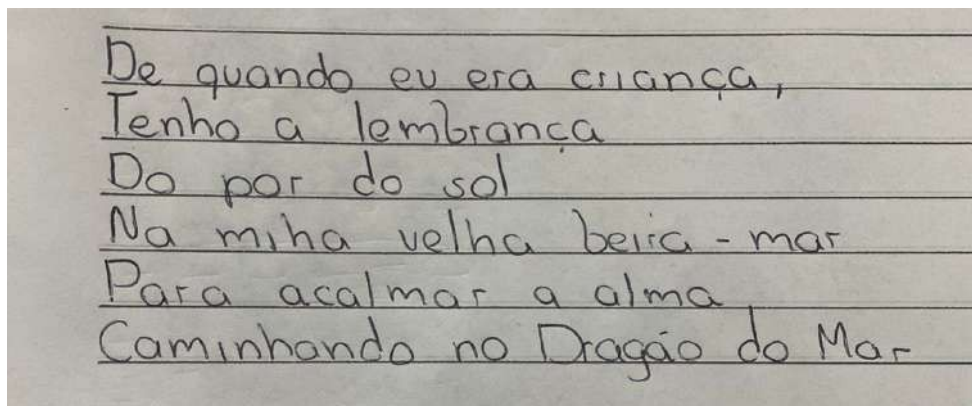 De quando eu era criança,
Tenho a lembrança
Do por do sol
Na miha velha beira-mar
Para acalmar a alma
Caminhando no Dragão do Mar